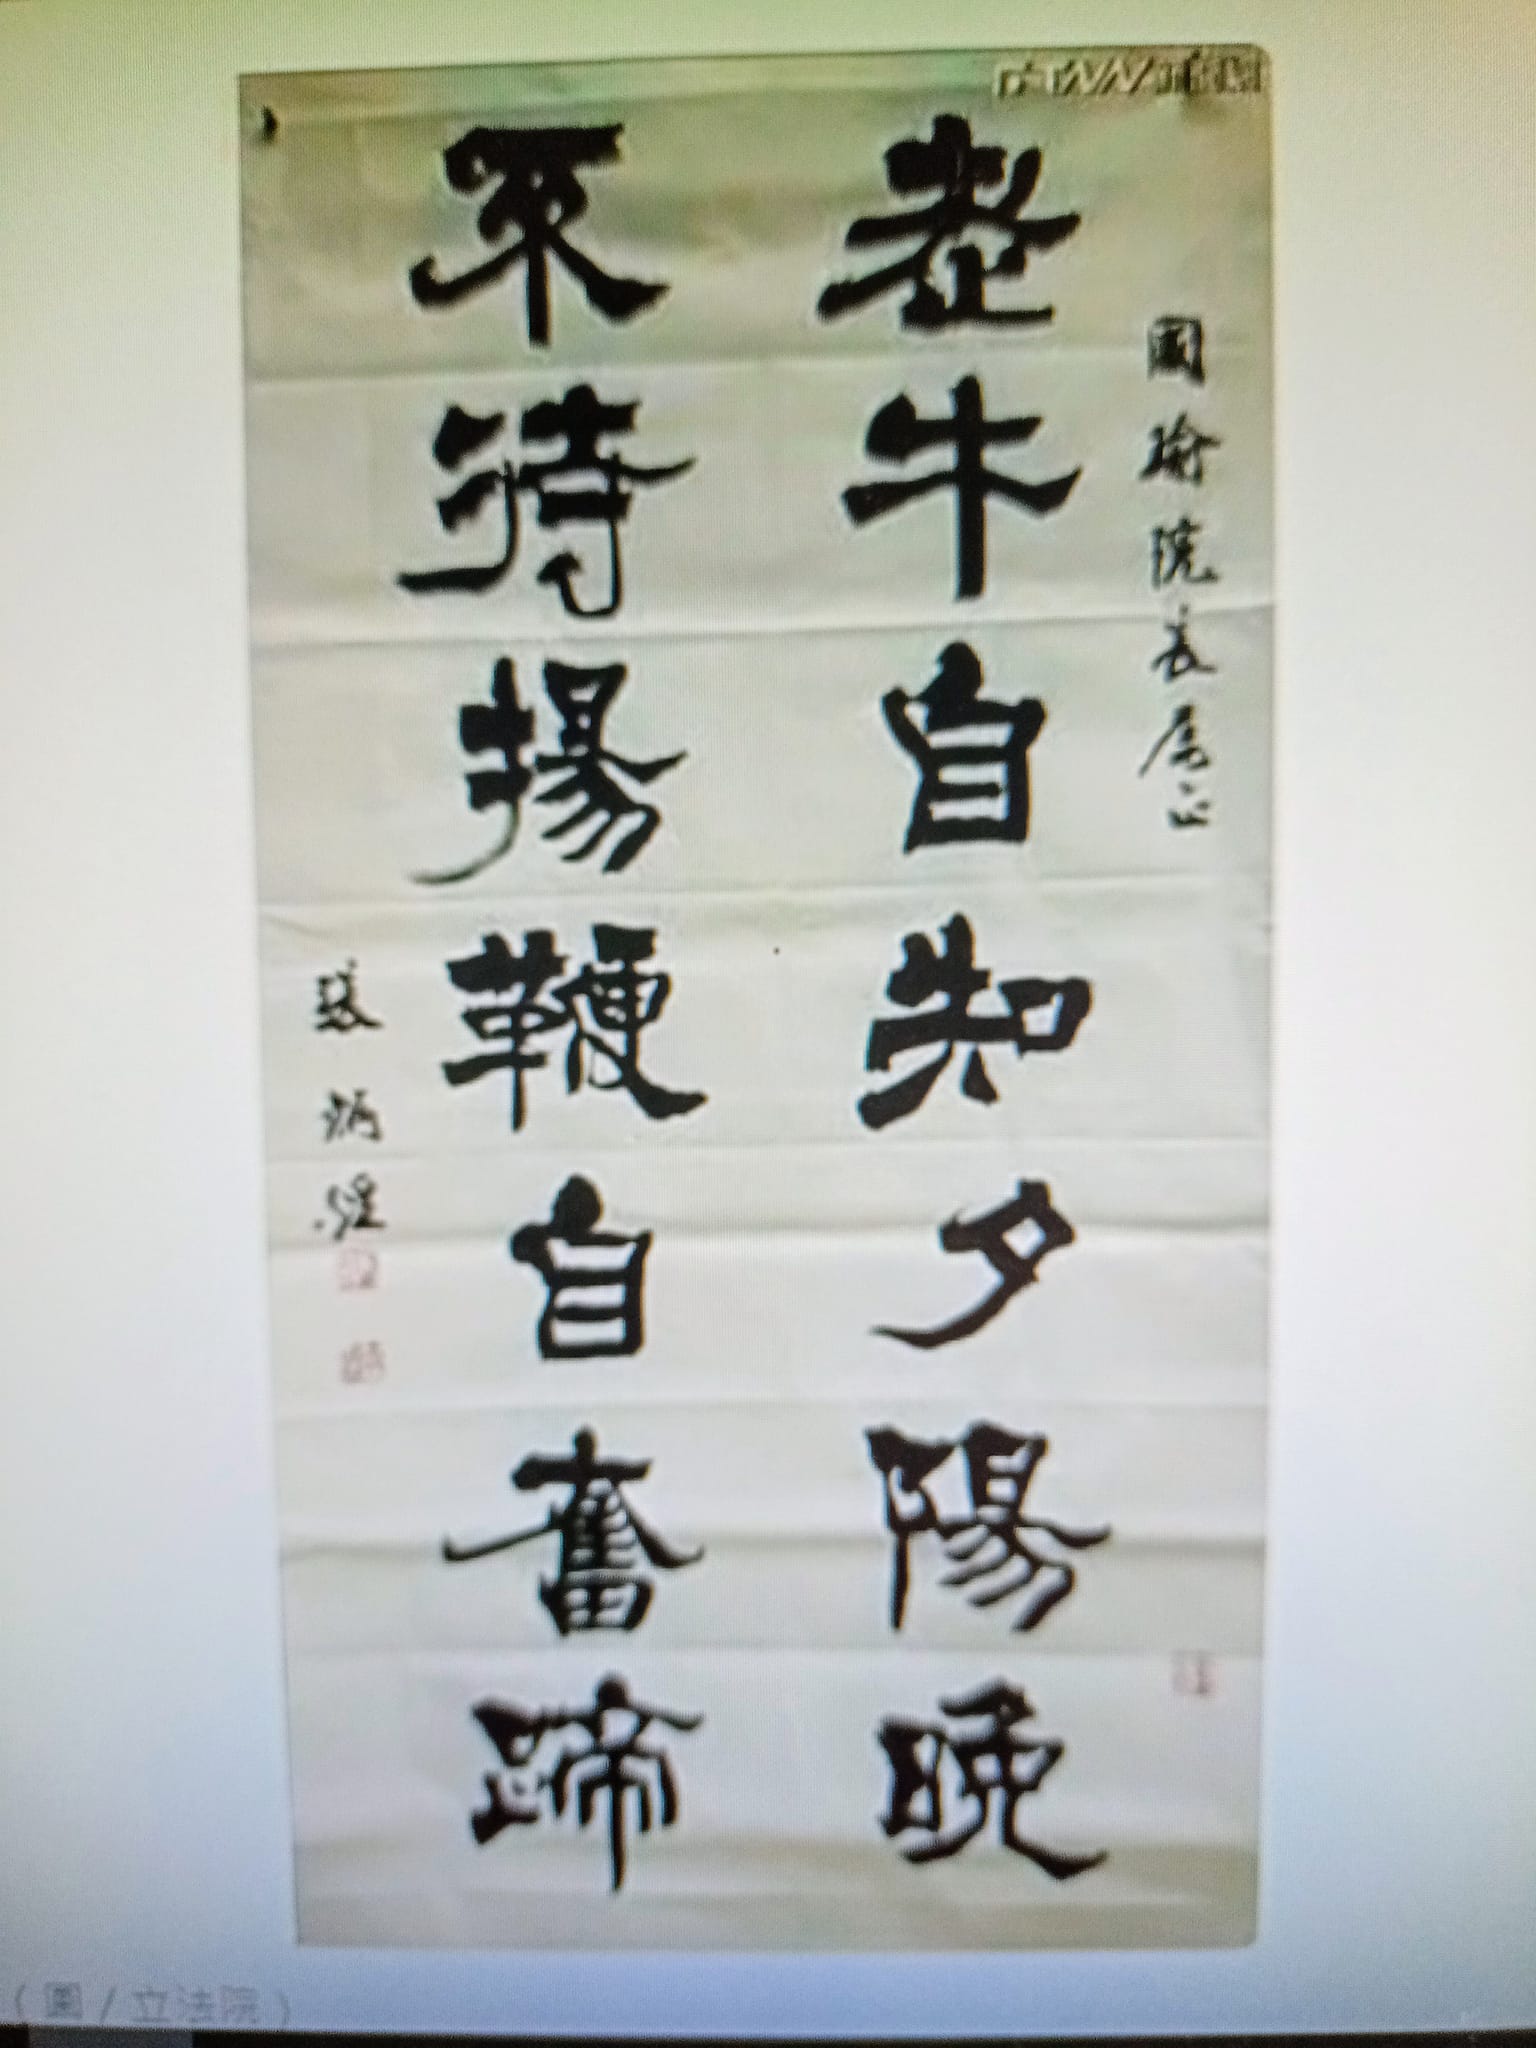 國瑜院長屬正
老牛自知夕陽晚
不待揚鞭自奮蹄
張炳煌
(圖/立法院)